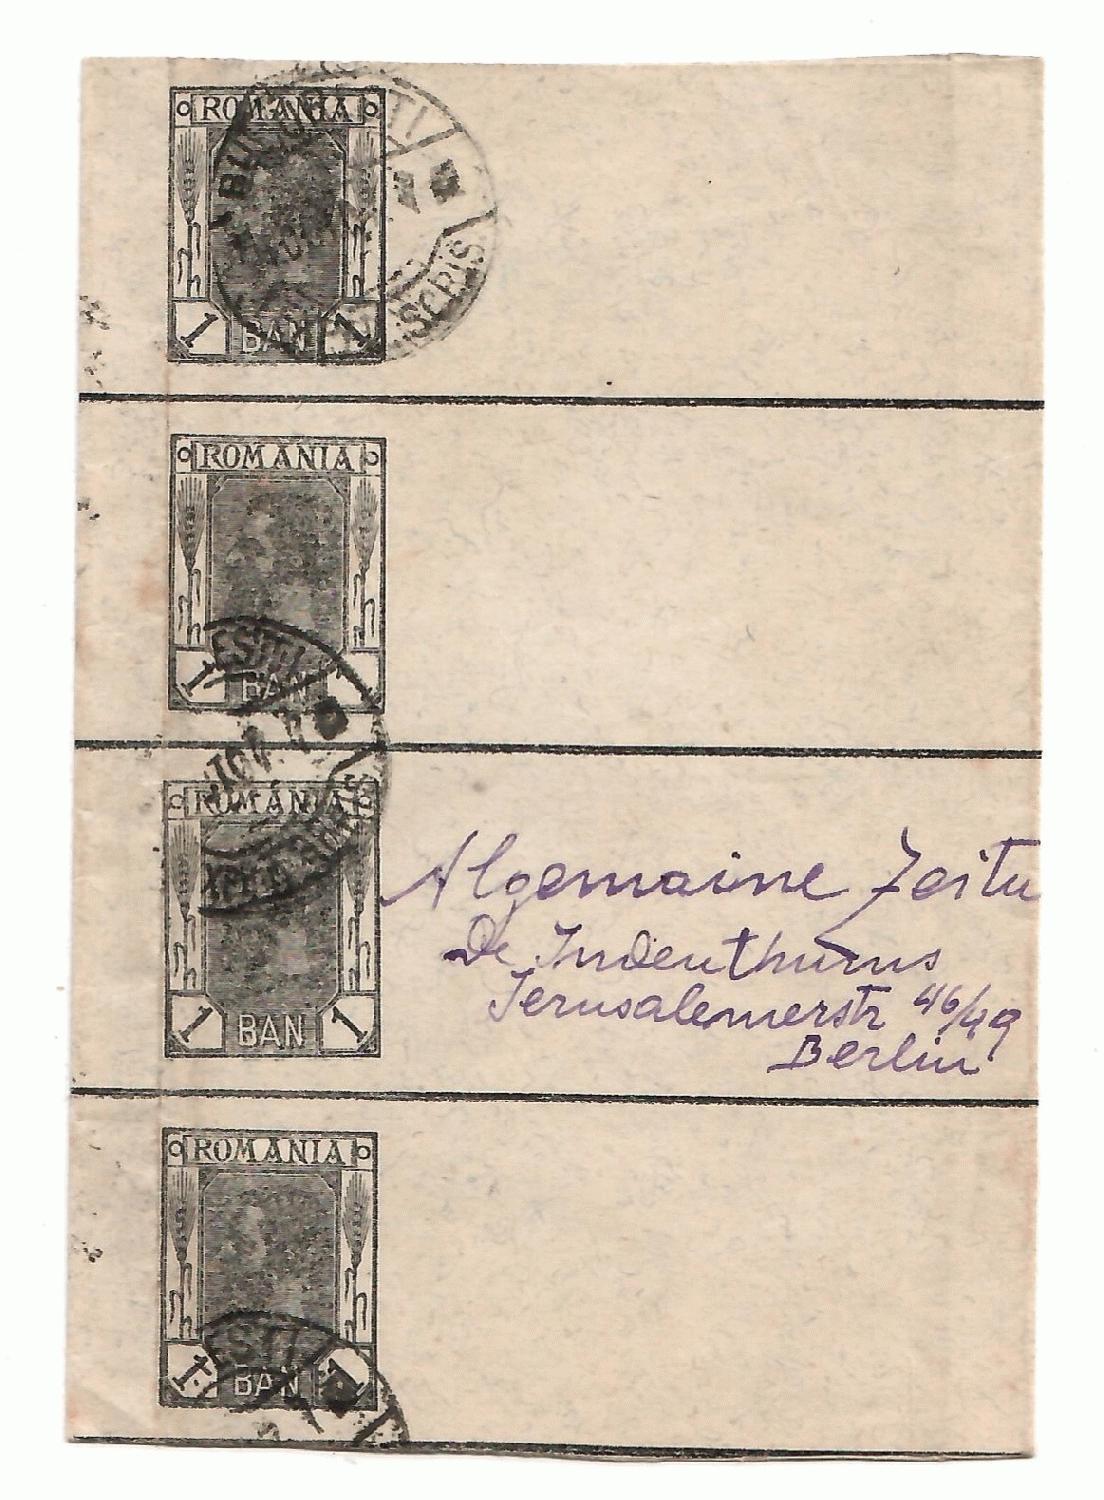 ROMANIA
BUCURESTI
SCRIS
1 BAN 1
ROMANIA
ESTI
1 BAN 1
ROMANIA
Algemaine Zeitu
De Judenthums
Jerusalemerstr 46/49
Berlin
1 BAN 1
ROMANIA
ESTI
1 BAN 1